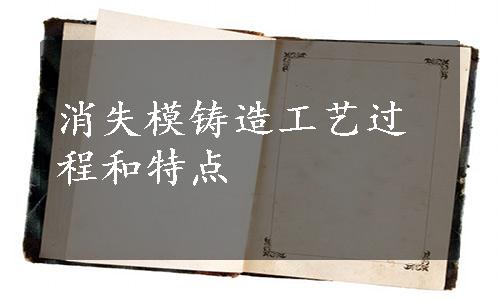 消失模铸造工艺过
程和特点